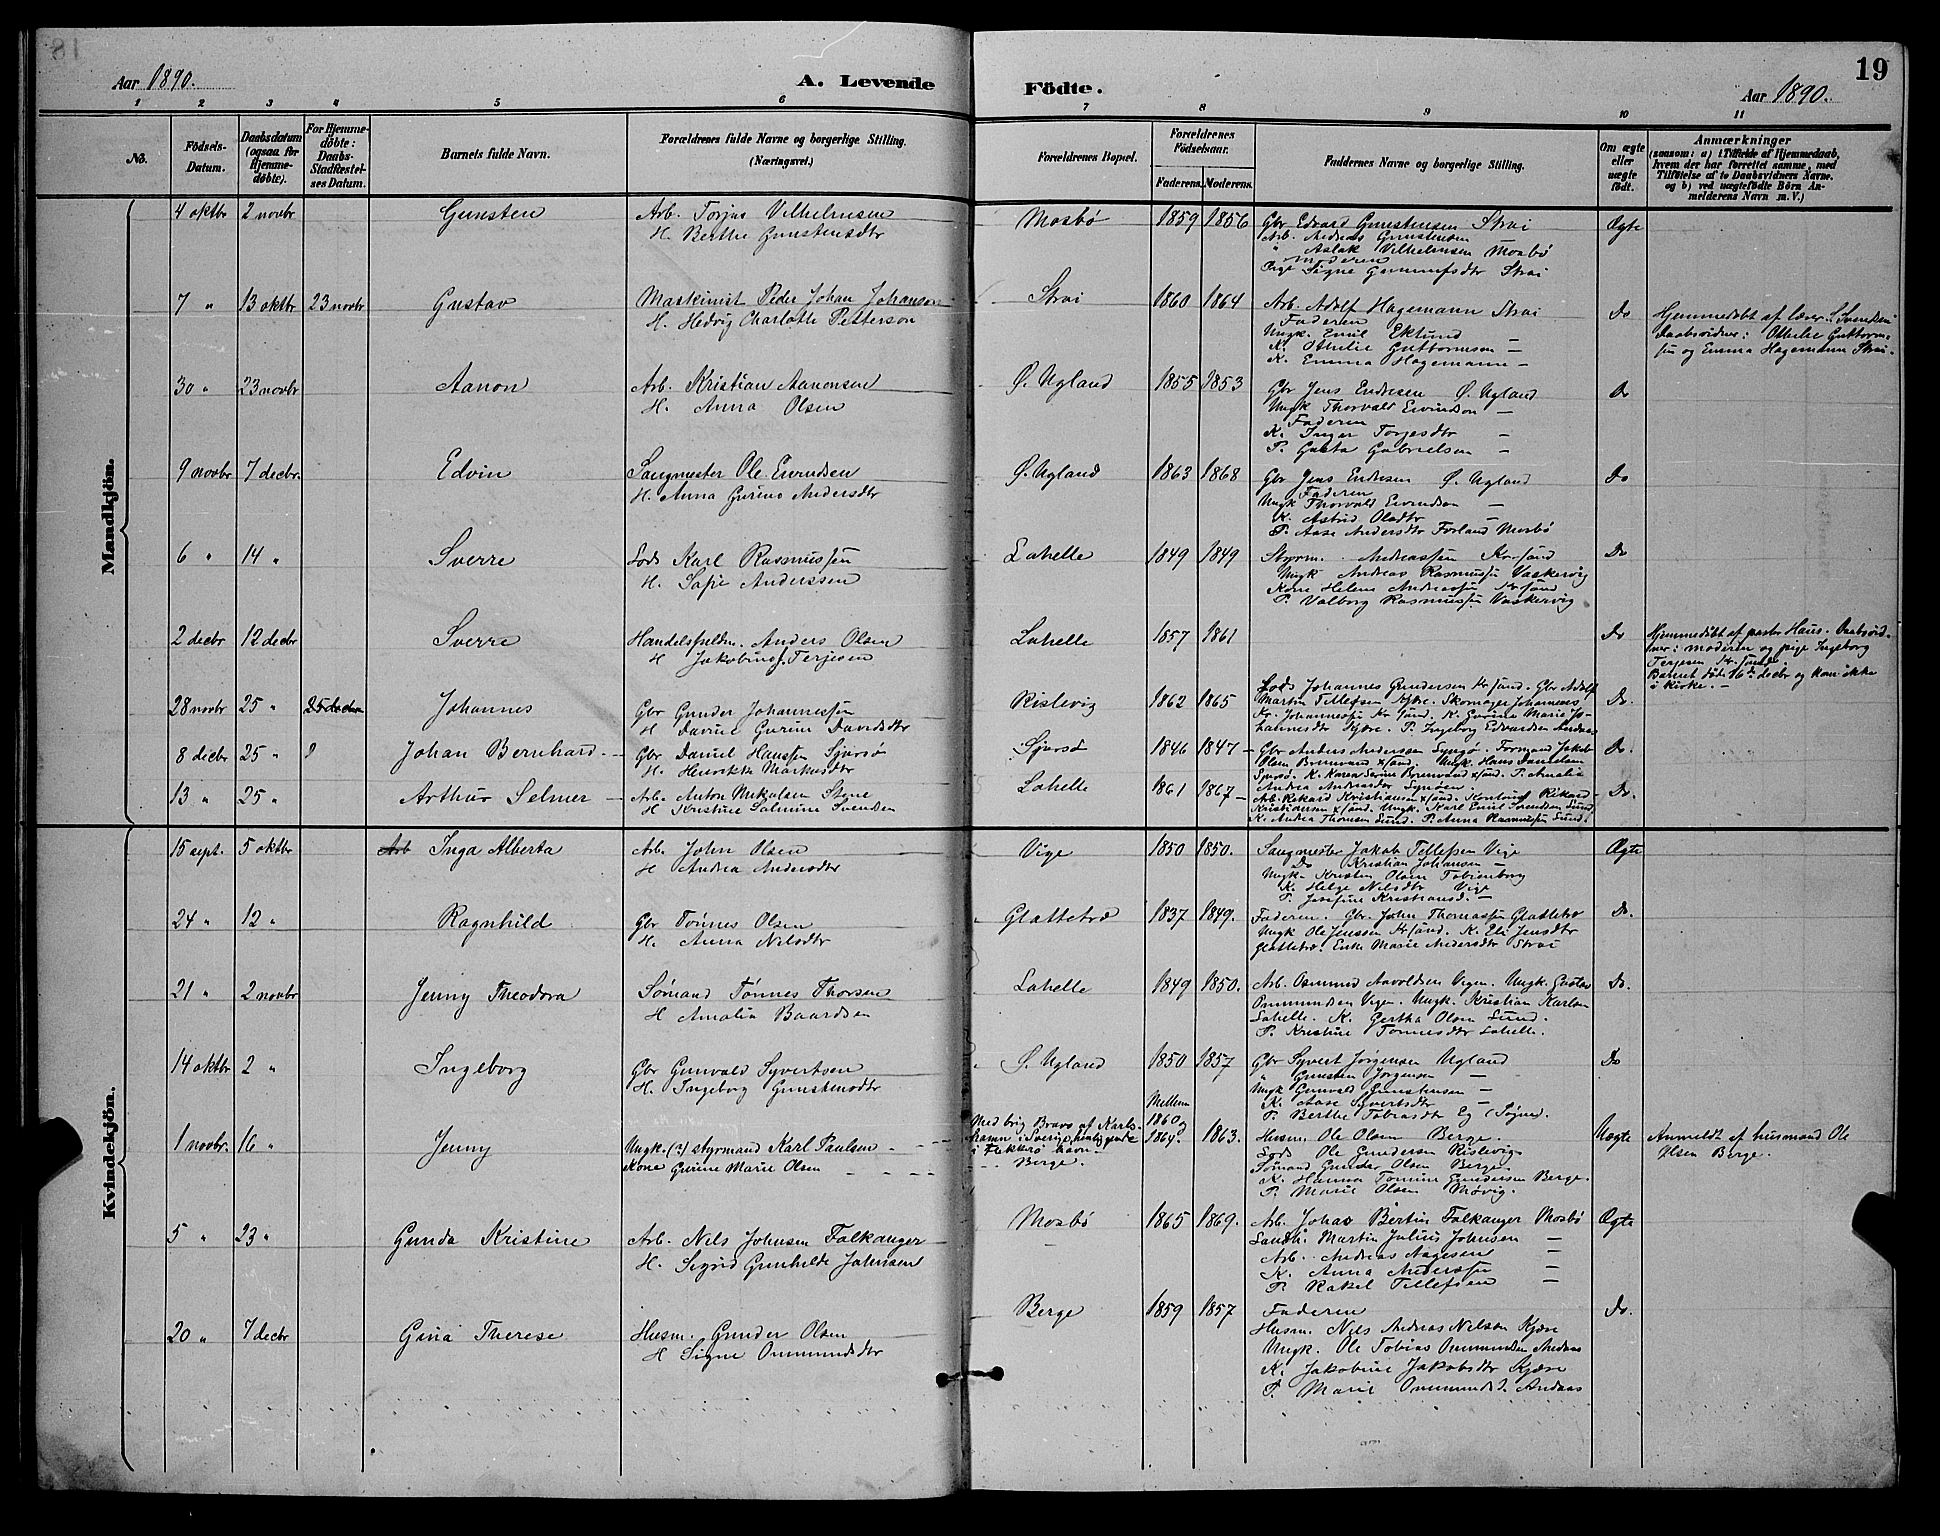 19
Aar 1890. A. Levende Födte. Aar 1890.
1 2 3 4 5 6 7 8 9 10 11
No. Födsels-Datum. Daabsdatum (ogsaa for Hjemme-döbte). For Hjemme-döbte: Daabs-Stadfæstel-ses Datum. Barnets fulde Navn. Forældrenes fulde Navne og borgerlige Stilling. (Næringsvei.) Forældrenes Bopæl. Forældrenes Födselsaar. Faderens. Moderens. Faddernes Navne og borgerlige Stilling. Om ægte eller uægte födt. Anmærkninger
(saasom: a) i Tilfælde af Hjemmedaab, hvem der har forrettet samme, med Tilföielse af to Daabsvidners Navne. og b) ved uægtefödte Börn An-melderens Navn m. V.)
Mandkjön.
4 oktbr 2 novbr Gunsten Arb. Torjus Vilhelmsen
H. Berthe Gunstensdtr
Mosbø 1859 1856 Gbr Edvard Gunstensen Strai
Arb. Andreas Gunstensen —
" Aslak Vilhelmsen Mosbø
Moderen
Pige Signe Gunnufsdtr Strai
Ægte
7 " 13 oktbr 23 novbr Gustav Maskinist Peder Johan Johanson
H. Hedvig Charlotte Petterson
Strai 1860 1864 Arb. Adolf Hagemann Strai
Faderen
Ungk. Emil Eklund
K. Othelie Guttormsen —
K. Emma Hagemann —
Do Hjemmedøbt af lærer S. Svendsen
Daabsvidner: Othelie Guttorm-
sen og Emma Hagemann Strai.
30 " 23 novbr Aanon Arb. Kristian Aanonsen
H. Anna Olsen
Ø. Ugland 1855 1853 Gbr Jens Endresen Ø. Ugland
Ungk Thorvald Eivindson —
Faderen
K. Inger Torjesdtr —
P. Gusta Gabrielsen —
Do
9 novbr 7 decbr. Edvin Sangmester Ole Eivindsen
H. Anna Gurine Andersdtr
Ø. Ugland 1863 1868 Gbr Jens Endresen Ø. Ugland
Faderen
Ungk Thorvald Eivindson —
K. Astrid Olsdtr —
P. Aase Andersdtr Forland Mosbø
Do
6 " 14 " Sverre Lods Karl Rasmussen
H. Sofie Anderssen
Lahelle 1849 1849 Styrm. Andreassen Kr.sand
Ungk Andreas Rasmussen Vaskervig
Kone Helene Andreassen Kr.sand
P. Valborg Rasmussen Vaskervig
Do
2 decbr 12 decbr Sverre Handelsfuldm. Anders Olsen
H Jakobine J. Terjesen
Lahelle 1857 1861 Do Hjemmedøbt af pastor Haus. Daabsvid-
ner: Moderen og pige Ingeborg
Terjesen Kr.sand
Barnet døde 16de decbr og kom ikke
i Kirke. —
28 novbr 25 " 25 decbr Johannes Gbr Gunder Johannessen
H Davine Gurine Davidsdtr
Rislevig 1862 1865 Lods Johannes Gundersen Kr.sand. Gbr Adolf
Martin Tellefsen Kjære. Skomager Johannes
Kr. Johannessen Kr.sand. K. Gurine Marie Jo-
hannesdtr Kjære. P. Ingeborg Edvardsen Andaas
Do.
8 decbr 25 " Johan Bernhard Gbr Daniel Hanssen Sjursø
H. Henrikke Markusdtr
Sjursø 1846 1847 Gbr Anders Anderssen Syngø. Formand Jakob
Olsen Brunvand Kr.sand. Ungk. Hans Danielsen
Sjursø. K. Karen Serine Brunvand Kr.sand. P. Amalie
Andrea Andreasdtr
Do.
13 " 25 " Arthur Selmer Arb. Anton Mikalsen Stene
H Kristine Salmine Svendsen
Lahelle 1861 1867 Arb. Rikard Kristiansen Kr.sand. Kontorist Rikard
Kristiansen Kr.sand. Ungk. Karl Emil Svendsen Lund.
K. Andrea Thomsen Lund. P. Anna Rasmussen Lund.
Do.
Kvindekjön.
15 sept. 5 oktbr Arb Inga Alberta Arb. John Olsen
H Andrea Andersdtr
Vige 1850 1850. Sangmester Jakob Tellefsen Vige
Do Kristian Johansen —
Ungk. Kristen Olsen Tobienborg
K. Helge Nilsdtr Vige
P. Josefine Kristiansd. —
Ægte
24 " 12 " Ragnhild Gbr Tønnes Olsen
H. Anna Nilsdtr
Glattetré 1837 1849. Faderen. Gbr. John Thomassen Glattetré
Ungk Ole Jenssen Kr.sand. K. Eli Jensdtr
Glattetré. Enke Marie Andersdtr Strai
Do.
21 " 2 novbr Jenny Theodora Sømand Tønnes Thorsen
H Amalia Baardsen
Lahelle 1849 1850. Arb. Osmund Aavoldsen Vigen. Ungk. Gustav
Ommundsen Vigen. Ungk. Kristian Karlsen
Lahelle. K. Gertha Olsen Lund.
P. Kristine Tønnesdtr Lahelle.
Do.
14 oktbr 2 " Ingeborg Gbr Gunvald Syvertsen
H. Ingeborg Gunstensdtr
Ø. Ugland 1850 1857 Gbr Syvert Jørgensen Ugland
" Gunsten Jørgensen —
Ungk Gunvald Gunstensen —
K. Aase Syvertsdtr —
P. Berthe Tobiasdtr Eg (Søgne).
Do
1 novbr. 16 " Jenny Ungk. (?) styrmand Karl Paulsen
Kone Gurine Marie Olsen
Med brig Bravo af Karls-
hamn i Sverige
i Flekkerø havn.
Berge.
Mellem
1860 og
1864. 1863. Husm. Ole Olsen Berge.
Lods Ole Gundersen Rislevig
Sømand Gunder Olsen Berge
K. Hanna Tomine Gundersen Berge.
P. Marie Olsen Møvig.
Uægte Anmeldt af husmand Ole
Olsen Berge.
5 " 23 " Gunda Kristine Arb. Nels Johnsen Falkanger
H. Sigrid Gunhilde Johnsen
Mosbø 1865 1869. Arb. Johas Bertin Falkanger Mosbø
Landh. Martin Julius Johnsen —
Arb. Andreas Aagesen —
K. Anna Anderssen —
P. Rakel Tellefsen —
Ægte
20 " 7 decbr Gina Therese Husm. Gunder Olsen
H Signe Ommundsdtr
Berge 1859 1857 Faderen
Husm. Nels Andreas Nelson Kjære
Ungk. Ole Tobias Ommundsen Andaas
K. Jakobine Jakobsdtr Kjære
P. Marie Ommundsd. Andaas
Do.